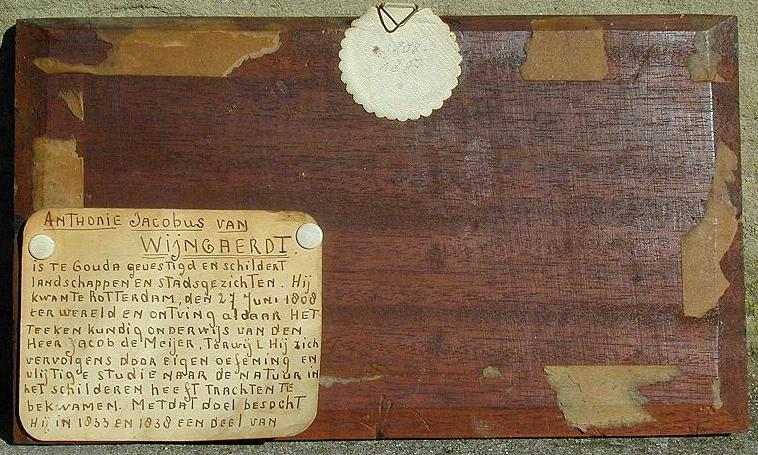 1808
1887
ANTHONIE JACOBUS VAN
WIJNGAERDT.
IS TE GOUDA gevestigd EN schildert
landschappen en stadsgezichten. Hij
kwam te ROTTERDAM, den 27 Juni 1808
ter wereld en ontving aldaar HET
TEEKENKUNDIG ONDERWIJS VAN DEN
HEER Jacob de Meijer, TERWIJL Hij zich
vervolgens door eigen oefening EN
vlijtige studie NAAR DE NATUUR IN
HET SCHILDEREN HEEFT TRACHTEN TE
bekwamen. METDAT doel BESOCHT
Hij IN 1833 EN 1838 EEN DEEL VAN